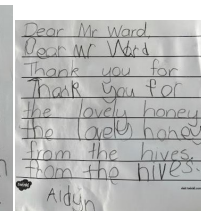 Dear Mr Ward
Dear Mr Ward
Thank you for
Thank you for
the lovely honey
the lovely honey
from the hives.
from the hives.
twinkl
Aldyn